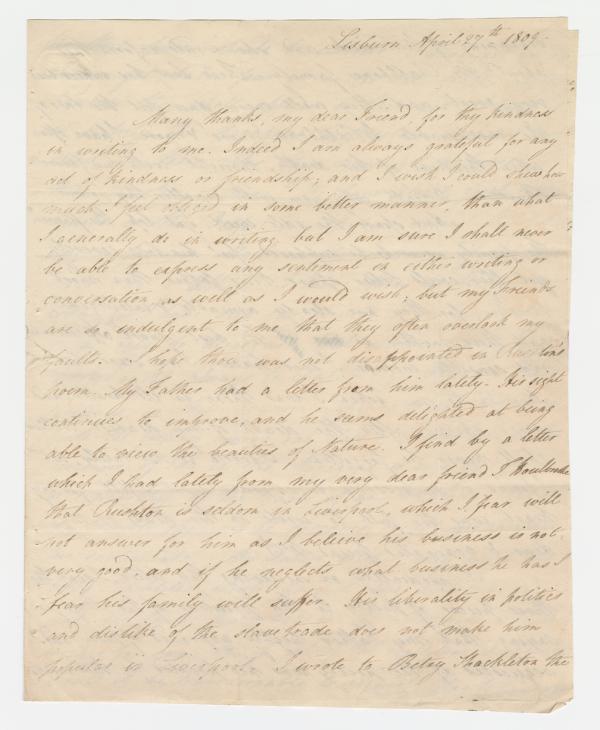 Lisburn April 27th 1809.
Many thanks, my dear Friend, for thy kindness
in writing to me. Indeed I am always grateful for any
act of kindness or friendship; and I wish I could shew how
much I feel obliged in some better manner, than what
I generally do in writing, but I am sure I shall never
be able to express any sentiment in either writing or
conversation as well as I would wish; but my Friends
are so indulgent to me that they often overlook my
faults. I hope thou was not disappointed in Rushton's
poem. My Father had a letter from him lately. His sight
continues to improve, and he seems delighted at being
able to view the beauties of Nature. I find by a letter
which I had lately from my very dear friend T
that Rushton is seldom in Liverpool, which I fear will
not answer for him as I believe his business is not
very good, and if he neglects what business he has I
fear his family will suffer. His liberality in politics
and dislike of the slave trade does not make him
popular in Liverpool. I wrote to Betsy Shackleton the